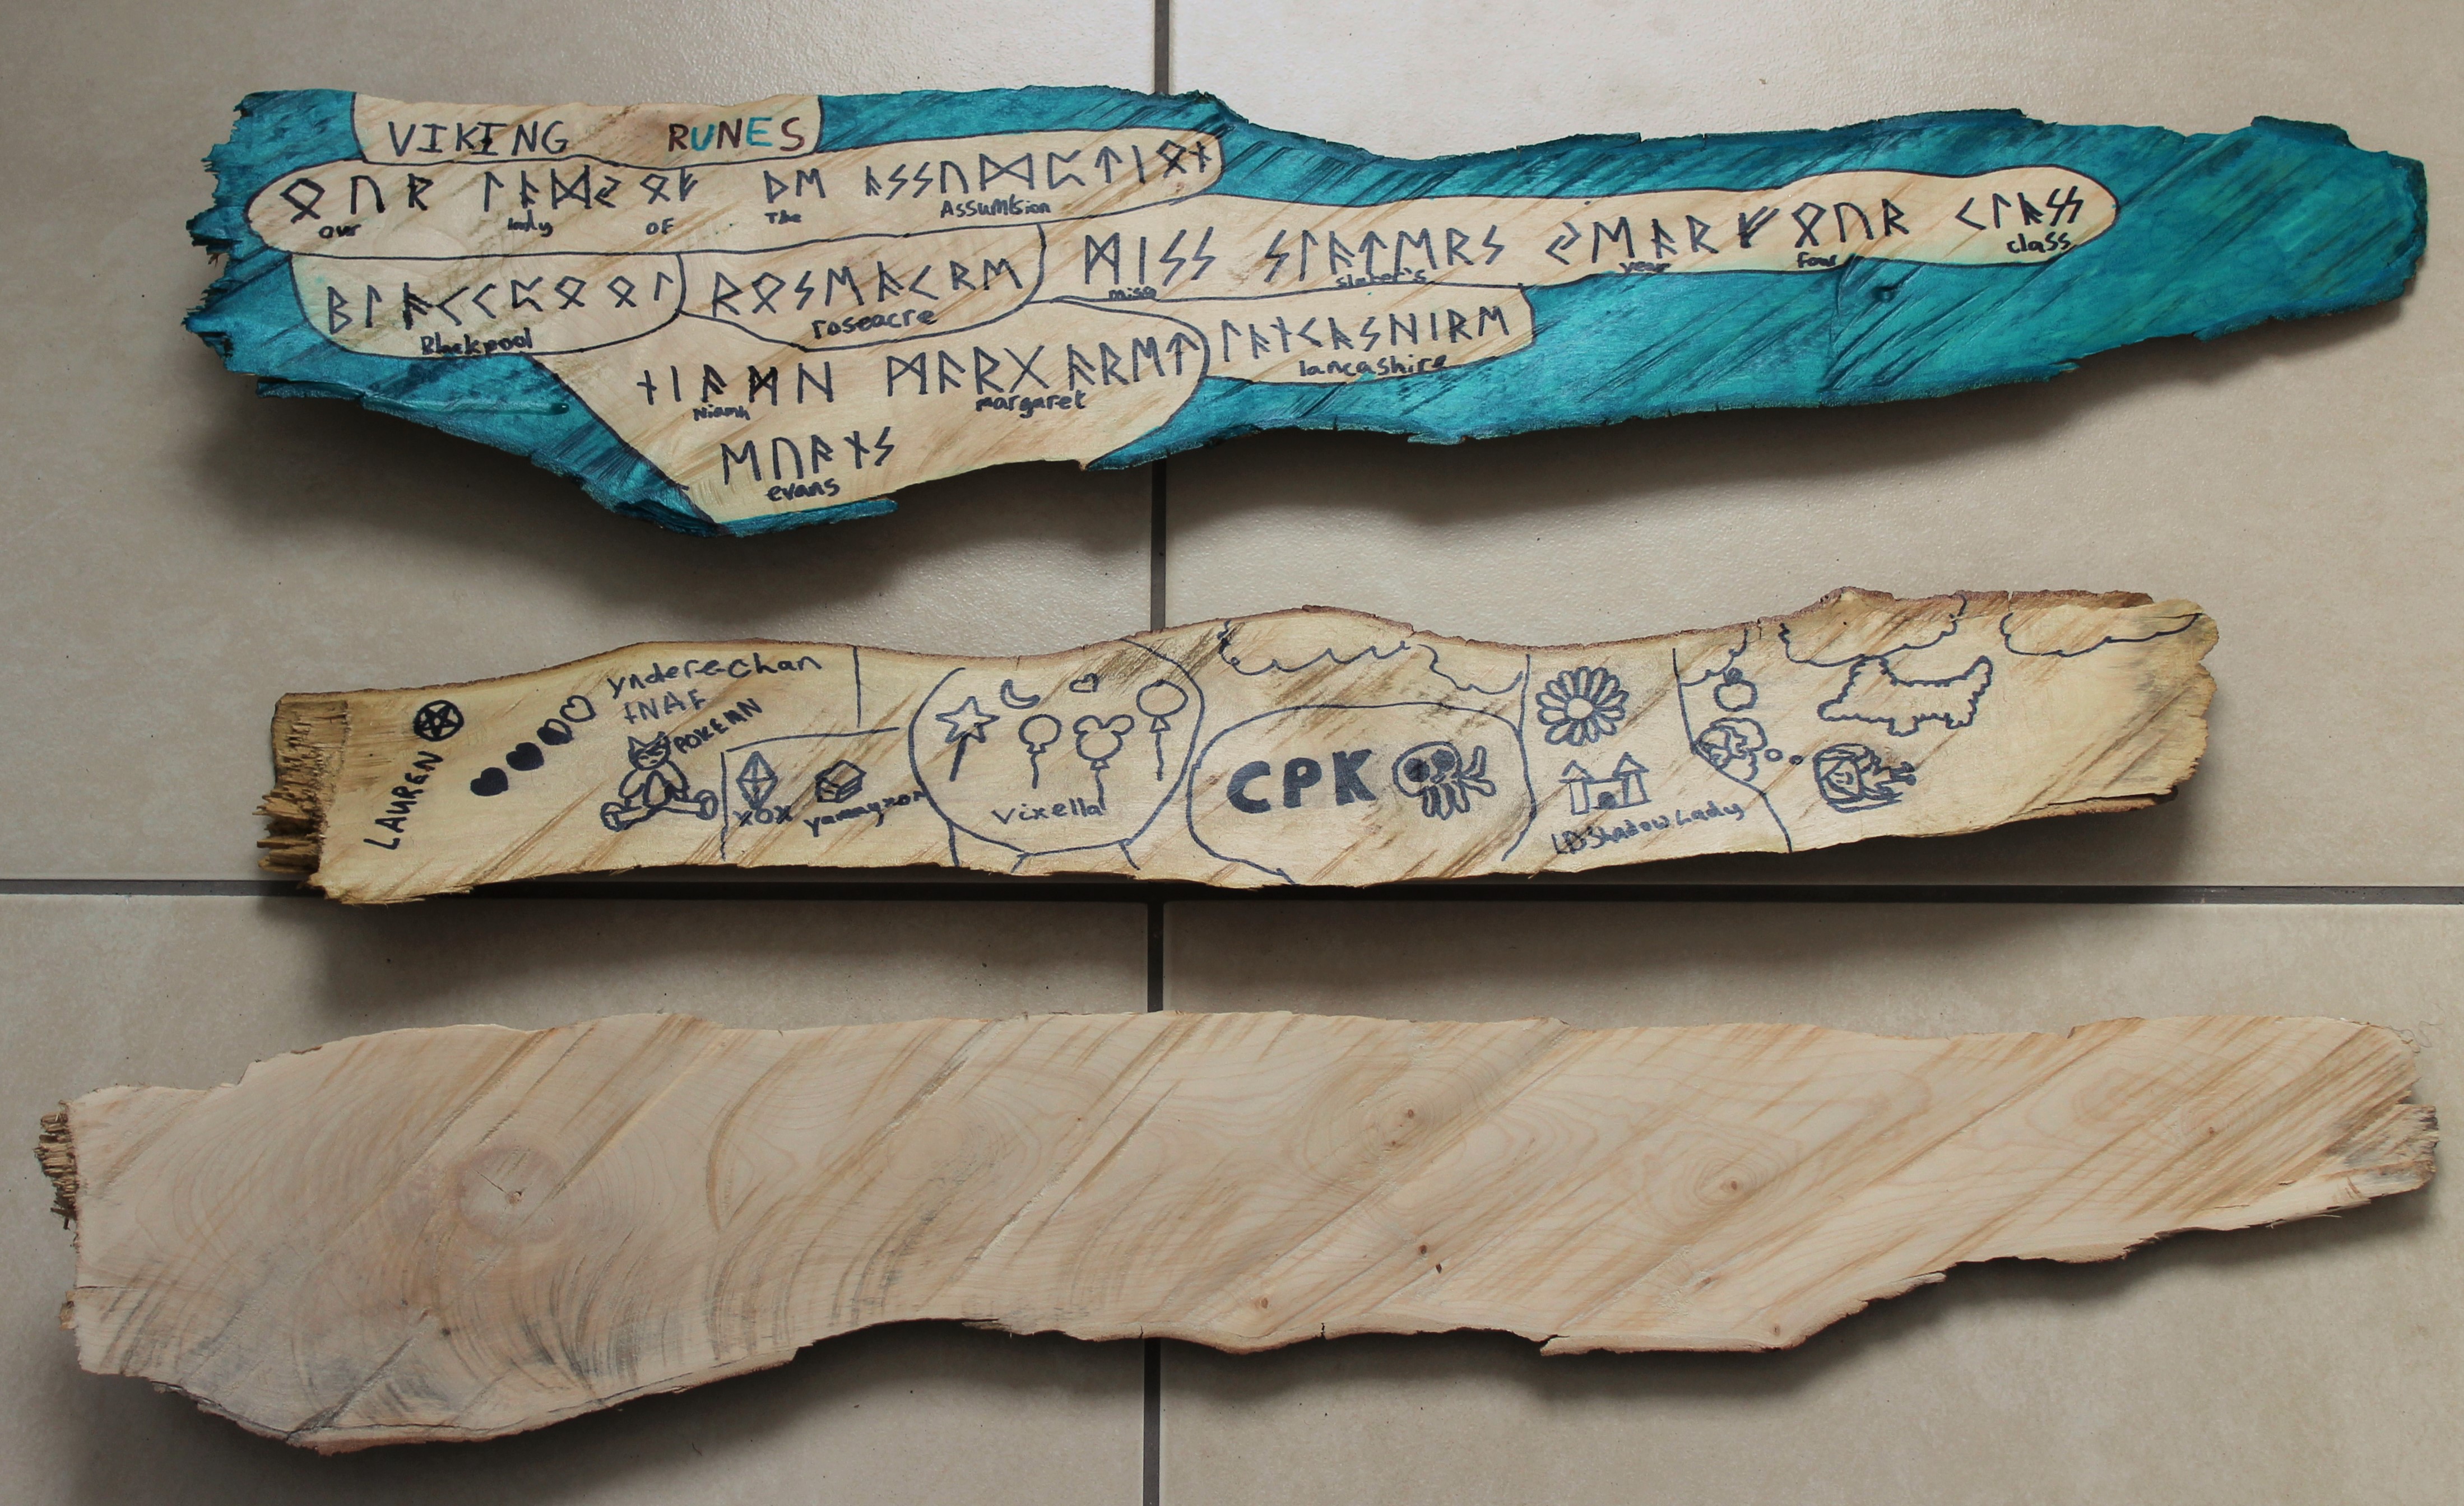 VIKING RUNES
ᛟᚢᚱ ᛚᚨᛞᛃ ᛟᚠ ᚦᛖ ᚨᛋᛋᚢᛗᛈᛏᛁᛟᚾ
our lady OF The
ᛗᛁᛋᛋ ᛋᛚᚨᛏᛖᚱᛋ ᛃᛖᚨᚱ ᚠᛟᚢᚱ ᚲᛚᚨᛋᛋ
miss slater's year four class
ᛒᛚᚨᚲᚲᛈᛟᛟᛚ
Blackpool
ᚱᛟᛋᛖᚨᚲᚱᛖ
roseacre
ᛚᚨᚾᚲᚨᛋᚺᛁᚱᛖ
lancashire
ᚾᛁᚨᛗᚺ ᛗᚨᚱᚷᚨᚱᛖᛏ
Niamh margaret
ᛖᚢᚨᚾᛋ
evans
LAUREN
yndere-chan
FNAF
XOX
Vixella
CPK
LDShadowLady